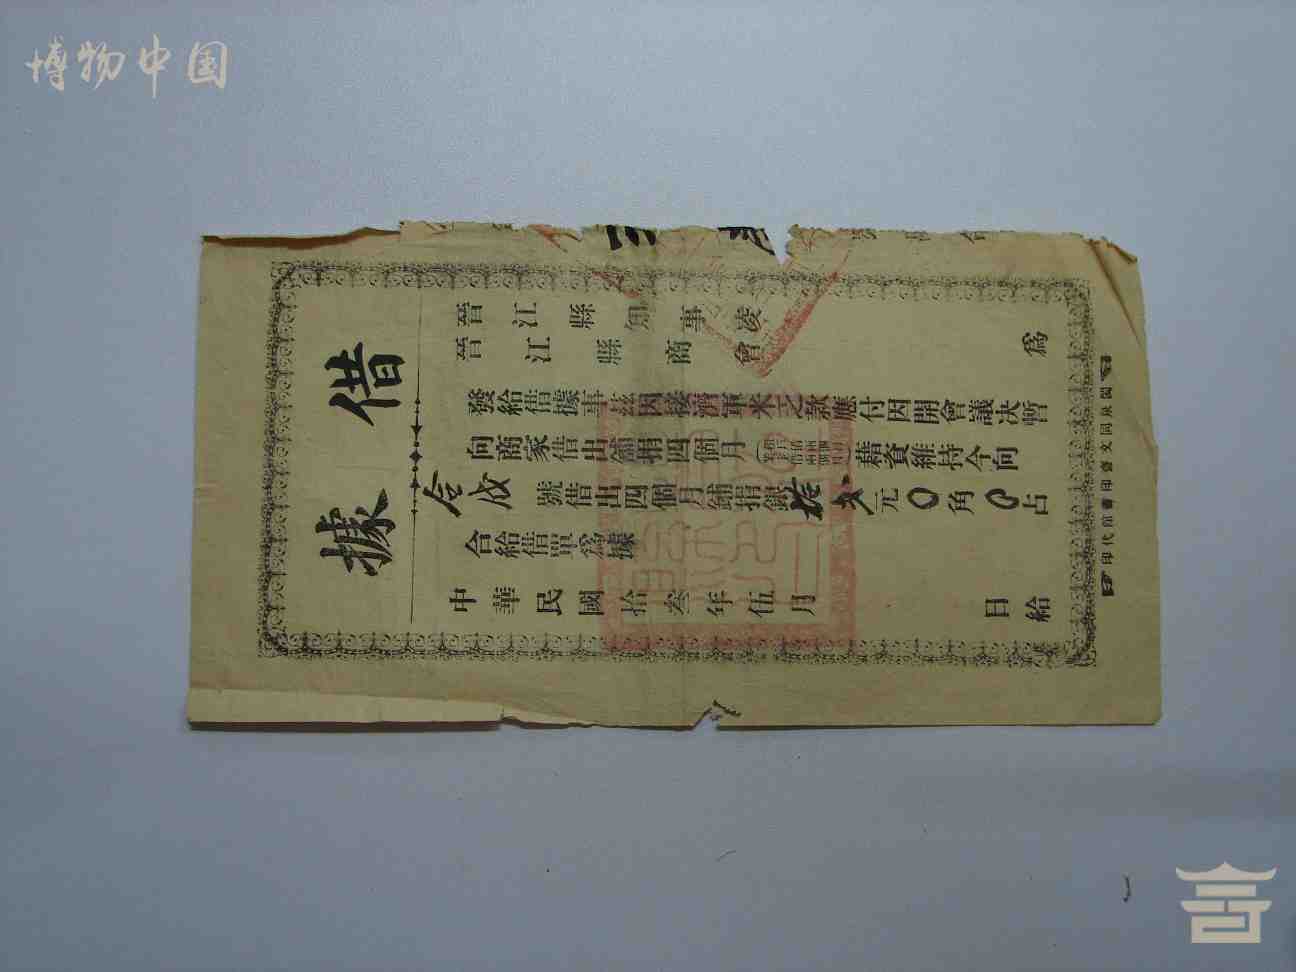 博物中国
借據
晉江縣知事凌
晉江縣商會 為
發給借據事茲因接濟軍米之款應付因開會議決暫
向商家借出舖捐四個月 藉資維持今向
合成 號借出四個月舖捐銀拾 元0角0占
合給借單為據
中華民國拾叁年伍月 日給
閩泉同文齋印書館代印